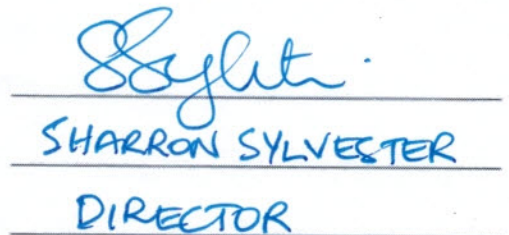 SSylvester
SHARRON SYLVESTER
DIRECTOR